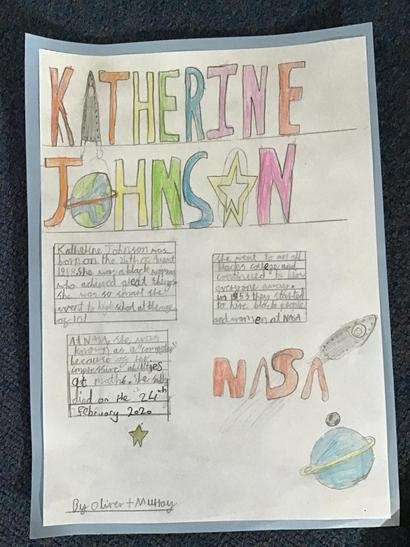 KATHERINE
JOHNSON
Katherine Johnson was
born on the 26th of August
1918. She was a black woman
who achieved great things
she was so smart she
went to high school at the age
of 10!
she went to an all
blacks college and
continued to blow
everyone away.
in 1953 they started
to hire black people
and women at NASA
At NASA she was
known as a "computer"
because of her
impressive abilities
at maths. She sadly
died on the 24th
February 2020
NASA
By Oliver + Murray